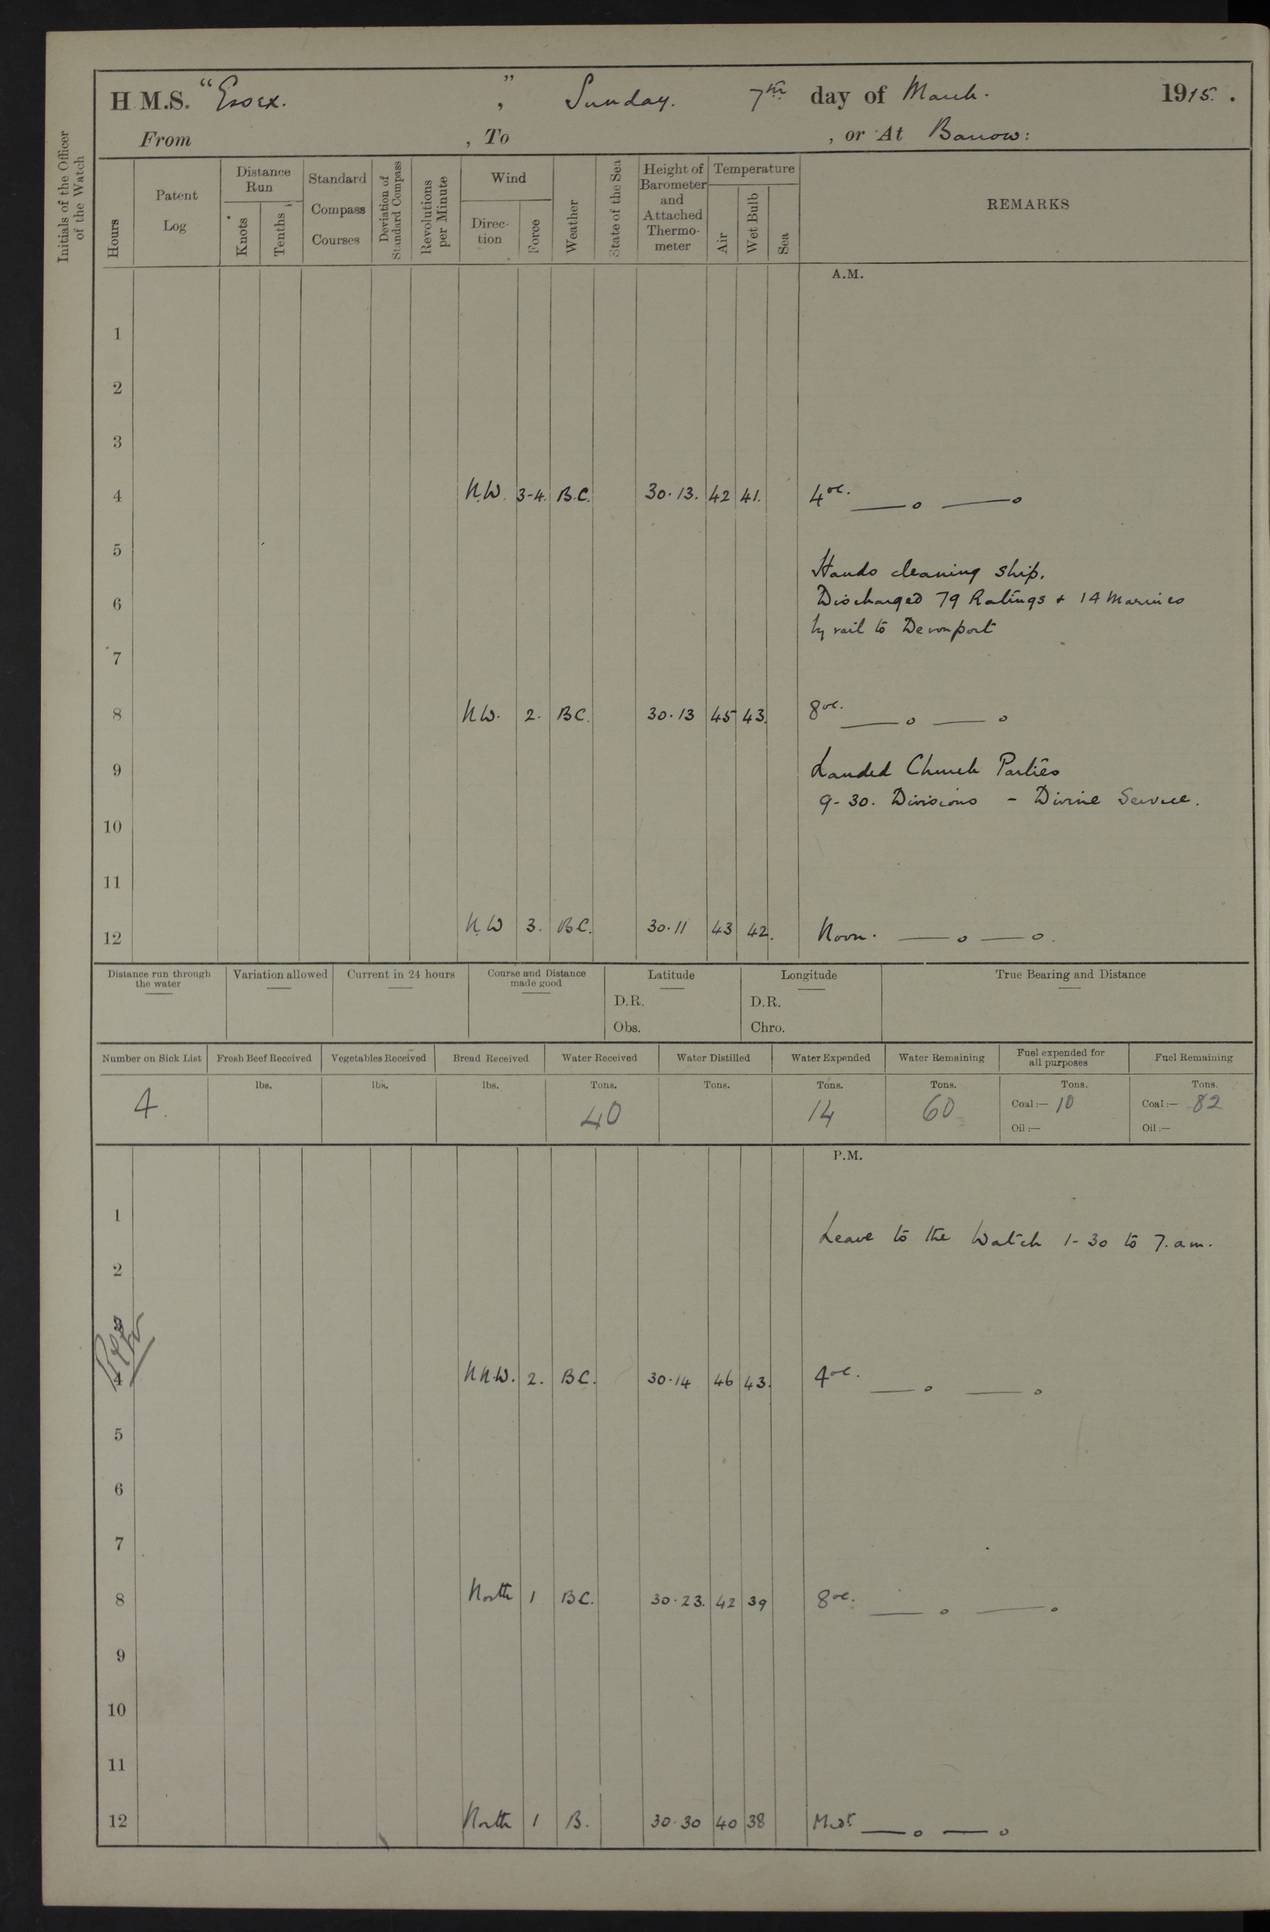 H M.S. "Essex. ", Sunday. 7th day of March. 1915.
From , To , or At Barrow:
Initials of the Officer of the Watch
Hours
Patent Log
Distance Run
Knots
Tenths
Standard Compass Courses
Deviation of Standard Compass
Revolutions per Minute
Wind
Direction
Force
Weather
State of the Sea
Height of Barometer and Attached Thermometer
Temperature
Air
Wet Bulb
Sea
REMARKS
A.M.
1
2
3
4 N.W. 3-4. B.C. 30.13. 42 41. 4oc. —— o —— o
5
Hands cleaning ship.
6 Discharged 79 Ratings + 14 Marines
by rail to Devonport
7
8 N.W. 2. B.C. 30.13 45 43. 8oc. —— o —— o
9 Landed Church Parties
9-30. Divisions - Divine Service.
10
11
12 N.W 3. B.C. 30.11 43 42. Noon. —— o —— o.
Distance run through the water
Variation allowed
Current in 24 hours
Course and Distance made good
Latitude
D.R.
Obs.
Longitude
D.R.
Chro.
True Bearing and Distance
Number on Sick List Fresh Beef Received Vegetables Received Bread Received Water Received Water Distilled Water Expended Water Remaining Fuel expended for all purposes Fuel Remaining
lbs. lbs. lbs. Tons. Tons. Tons. Tons. Tons. Tons.
4. 40 14 60 Coal:— 10 Coal:— 82
Oil:— Oil:—
P.M.
1
Leave to the Watch 1-30 to 7.a.m.
2
3
4 N.N.W. 2. B.C. 30.14 46 43. 4oc. —— o —— o
5
6
7
8 North 1 B.C. 30.23. 42 39 8oc. —— o —— o
9
10
11
12 North 1 B. 30.30 40 38 Midt —— o —— o